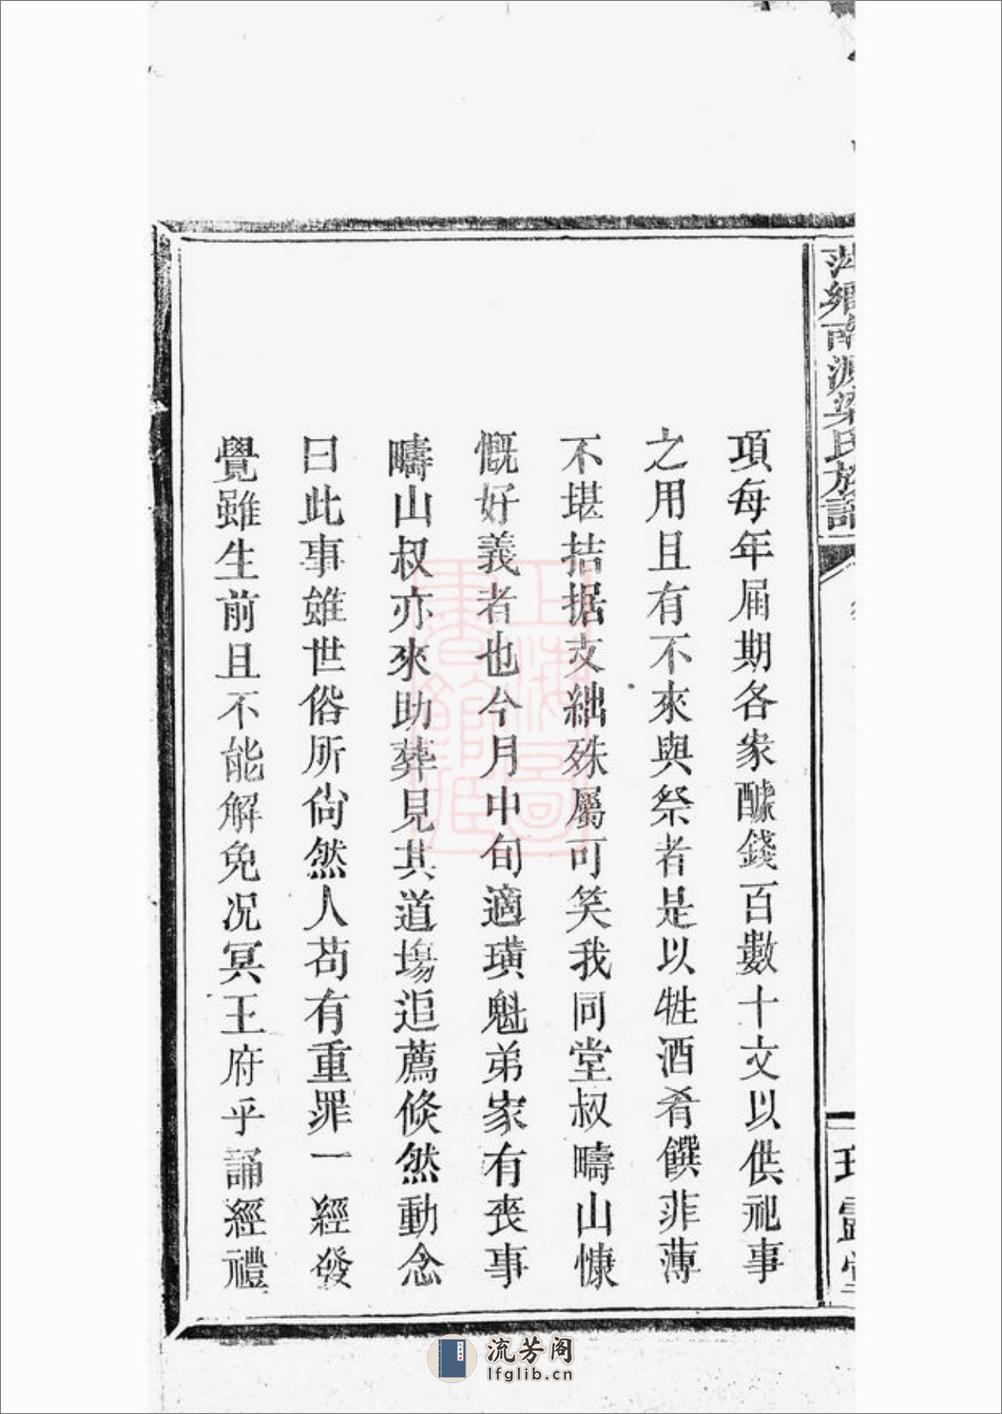 萍鄉南源梁氏族譜
項每年屆期各家醵錢百數十文以供祀事
之用且有不來與祭者是以牲酒肴饌菲薄
不堪拮据支絀殊屬可笑我同堂叔疇山慷
慨好義者也今月中旬適璜魁弟家有喪事
疇山叔亦來助葬見其道塲追薦倐然動念
曰此事雖世俗所尙然人苟有重罪一經發
覺雖生前且不能解免况冥王府乎誦經禮
上海圖書館藏
流芳阁
lfglib.cn